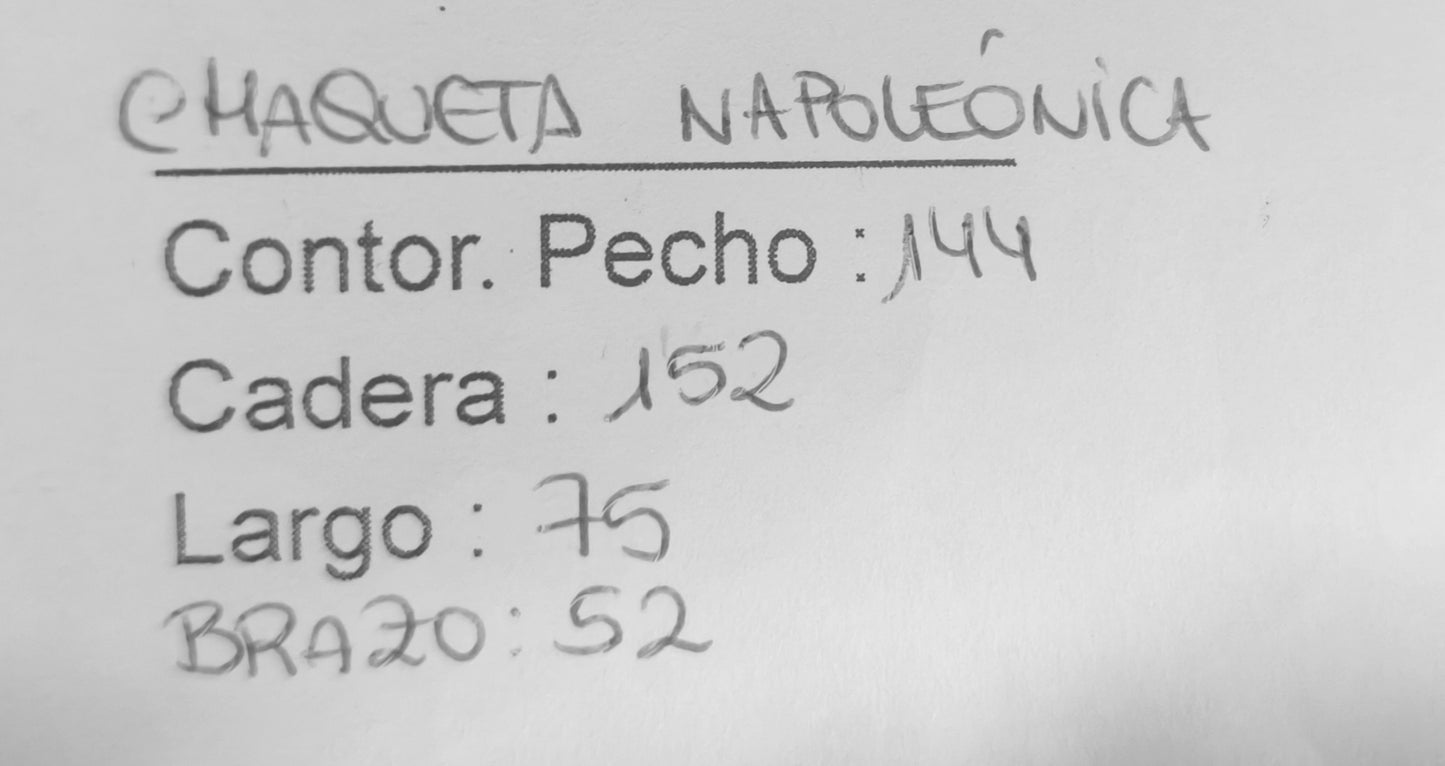 CHAQUETA NAPOLEÓNICA
Contor. Pecho : 144
Cadera : 152
Largo : 75
BRAZO: 52